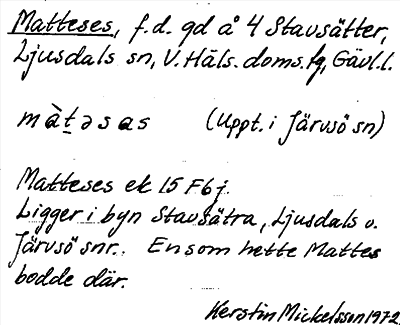 Matteses, f.d. gd å 4 Stavsätter,
Ljusdals sn, V. Häls. doms. fg, Gävl.l.
màt̲əsas (Uppt. i Järvsö sn)
Matteses ek 15 F6j.
Ligger i byn Stavsätra, Ljusdals o.
Järvsö snr. En som hette Mattes
bodde där.
Kerstin Mickelsson 1972